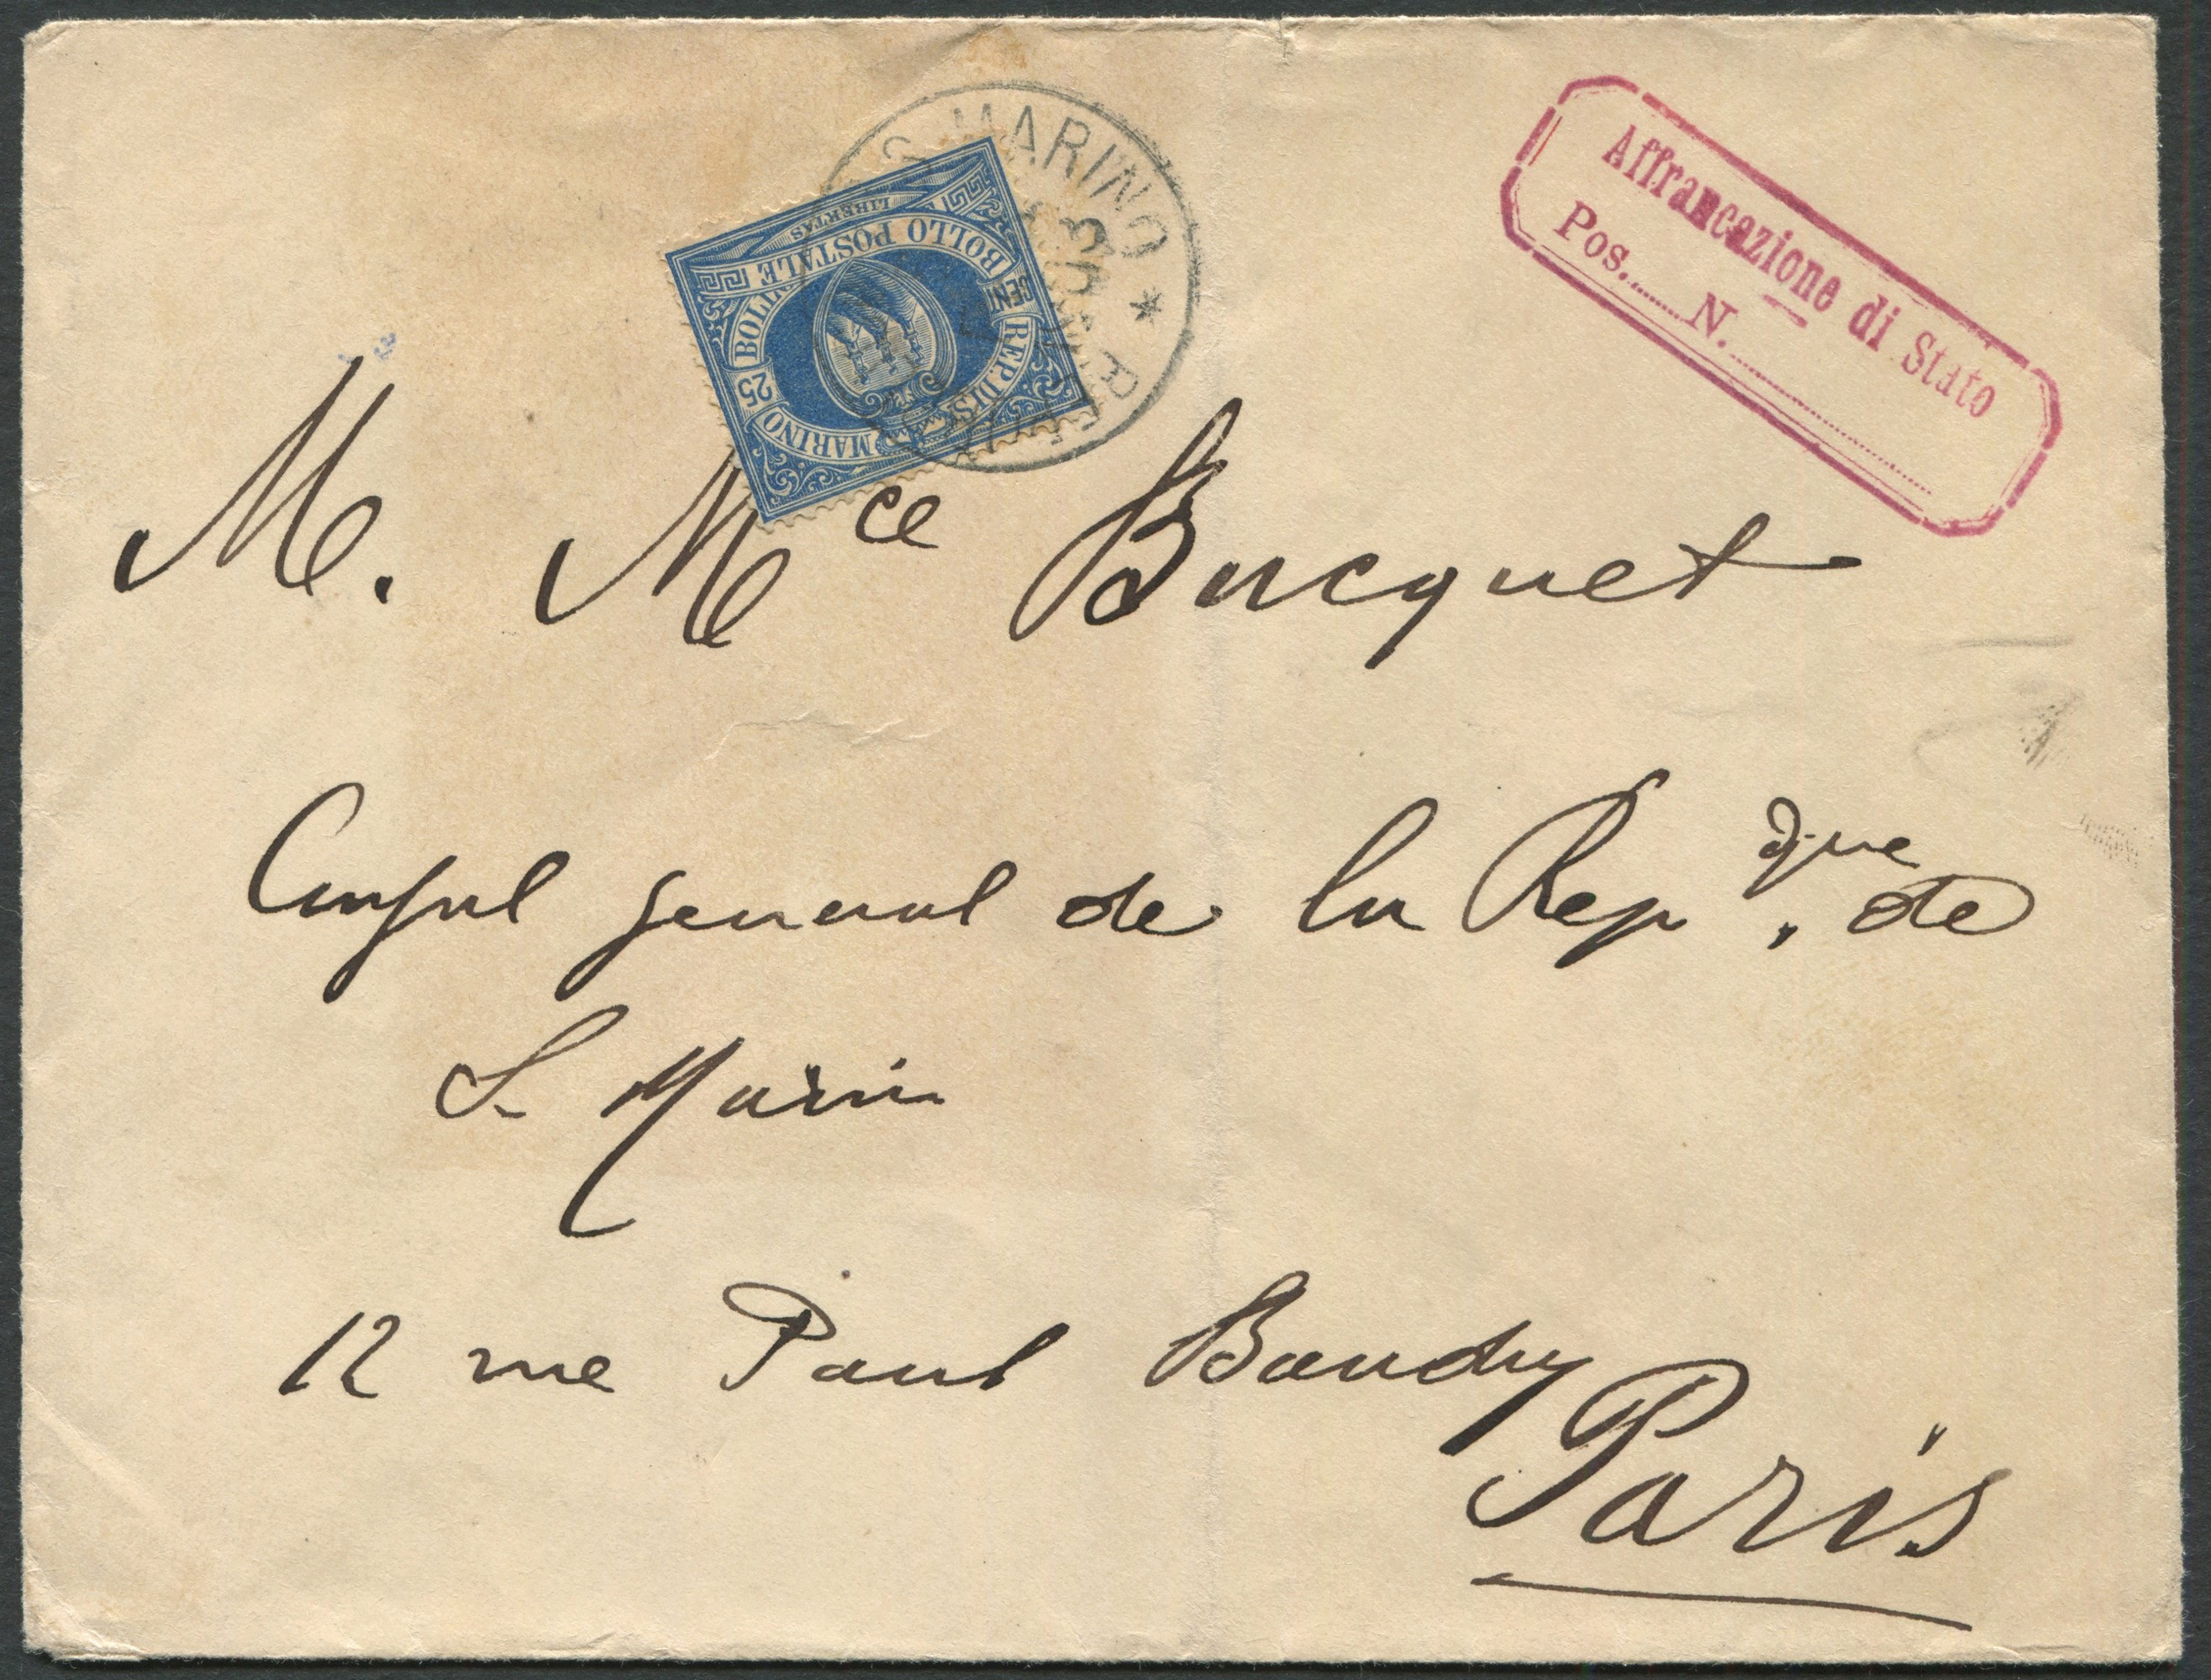 S. MARINO * REP.
LIBERTAS
BOLLO POSTALE
CENT
25
REP. DI S. MARINO
Affrancazione di Stato
Pos. N.
M. Mce Bucquet
Consul general de la Repque. de
S. Marin
12 rue Paul Baudry
Paris